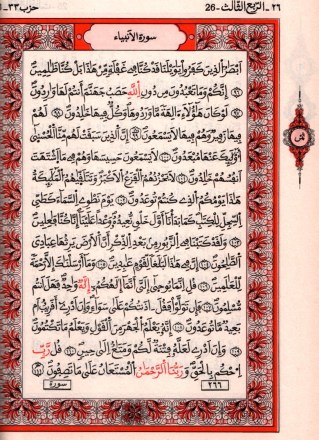 ٢٦ - الربع الثالث - 26
حزب ٣٣ -
سورة الأنبياء
أَبْصَٰرُ الَّذِينَ كَفَرُوا يَٰوَيْلَنَا قَدْ كُنَّا فِي غَفْلَةٍ مِّنْ هَٰذَا بَلْ كُنَّا ظَٰلِمِينَ
٩٧ إِنَّكُمْ وَمَا تَعْبُدُونَ مِن دُونِ اللَّهِ حَصَبُ جَهَنَّمَ أَنتُمْ لَهَا وَٰرِدُونَ
٩٨ لَوْ كَانَ هَٰؤُلَاءِ ءَالِهَةً مَّا وَرَدُوهَا وَكُلٌّ فِيهَا خَٰلِدُونَ ٩٩ لَهُمْ
فِيهَا زَفِيرٌ وَهُمْ فِيهَا لَا يَسْمَعُونَ ١٠٠ إِنَّ الَّذِينَ سَبَقَتْ لَهُم مِّنَّا الْحُسْنَىٰ
أُولَٰئِكَ عَنْهَا مُبْعَدُونَ ١٠١ لَا يَسْمَعُونَ حَسِيسَهَا وَهُمْ فِي مَا اشْتَهَتْ
أَنفُسُهُمْ خَٰلِدُونَ ١٠٢ لَا يَحْزُنُهُمُ الْفَزَعُ الْأَكْبَرُ وَتَتَلَقَّىٰهُمُ الْمَلَٰئِكَةُ
هَٰذَا يَوْمُكُمُ الَّذِي كُنتُمْ تُوعَدُونَ ١٠٣ يَوْمَ نَطْوِي السَّمَاءَ كَطَيِّ
السِّجِلِّ لِلْكُتُبِ كَمَا بَدَأْنَا أَوَّلَ خَلْقٍ نُّعِيدُهُ وَعْدًا عَلَيْنَا إِنَّا كُنَّا فَٰعِلِينَ
١٠٤ وَلَقَدْ كَتَبْنَا فِي الزَّبُورِ مِن بَعْدِ الذِّكْرِ أَنَّ الْأَرْضَ يَرِثُهَا عِبَادِيَ
الصَّٰلِحُونَ ١٠٥ إِنَّ فِي هَٰذَا لَبَلَٰغًا لِّقَوْمٍ عَٰبِدِينَ ١٠٦ وَمَا أَرْسَلْنَٰكَ إِلَّا رَحْمَةً
لِّلْعَٰلَمِينَ ١٠٧ قُلْ إِنَّمَا يُوحَىٰ إِلَيَّ أَنَّمَا إِلَٰهُكُمْ إِلَٰهٌ وَٰحِدٌ فَهَلْ أَنتُم
مُّسْلِمُونَ ١٠٨ فَإِن تَوَلَّوْا فَقُلْ ءَاذَنتُكُمْ عَلَىٰ سَوَاءٍ وَإِنْ أَدْرِي أَقَرِيبٌ أَم
بَعِيدٌ مَّا تُوعَدُونَ ١٠٩ إِنَّهُ يَعْلَمُ الْجَهْرَ مِنَ الْقَوْلِ وَيَعْلَمُ مَا تَكْتُمُونَ
١١٠ وَإِنْ أَدْرِي لَعَلَّهُ فِتْنَةٌ لَّكُمْ وَمَتَٰعٌ إِلَىٰ حِينٍ ١١١ قُل رَّبِّ
احْكُم بِالْحَقِّ وَرَبُّنَا الرَّحْمَٰنُ الْمُسْتَعَانُ عَلَىٰ مَا تَصِفُونَ ١١٢
ثمن
٢٦٦
سورة